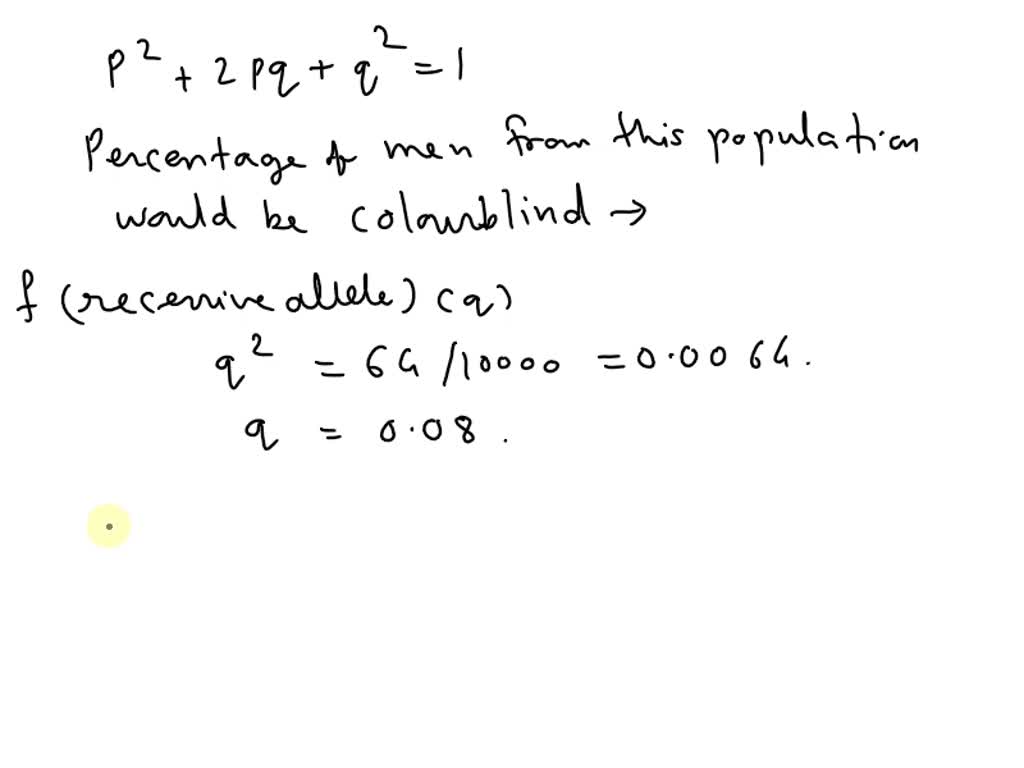 p² + 2pq + q² = 1
Percentage of men from this population
would be colourblind →
f (recessive allele) (q)
q² = 64 /10000 = 0.0064.
q = 0.08.